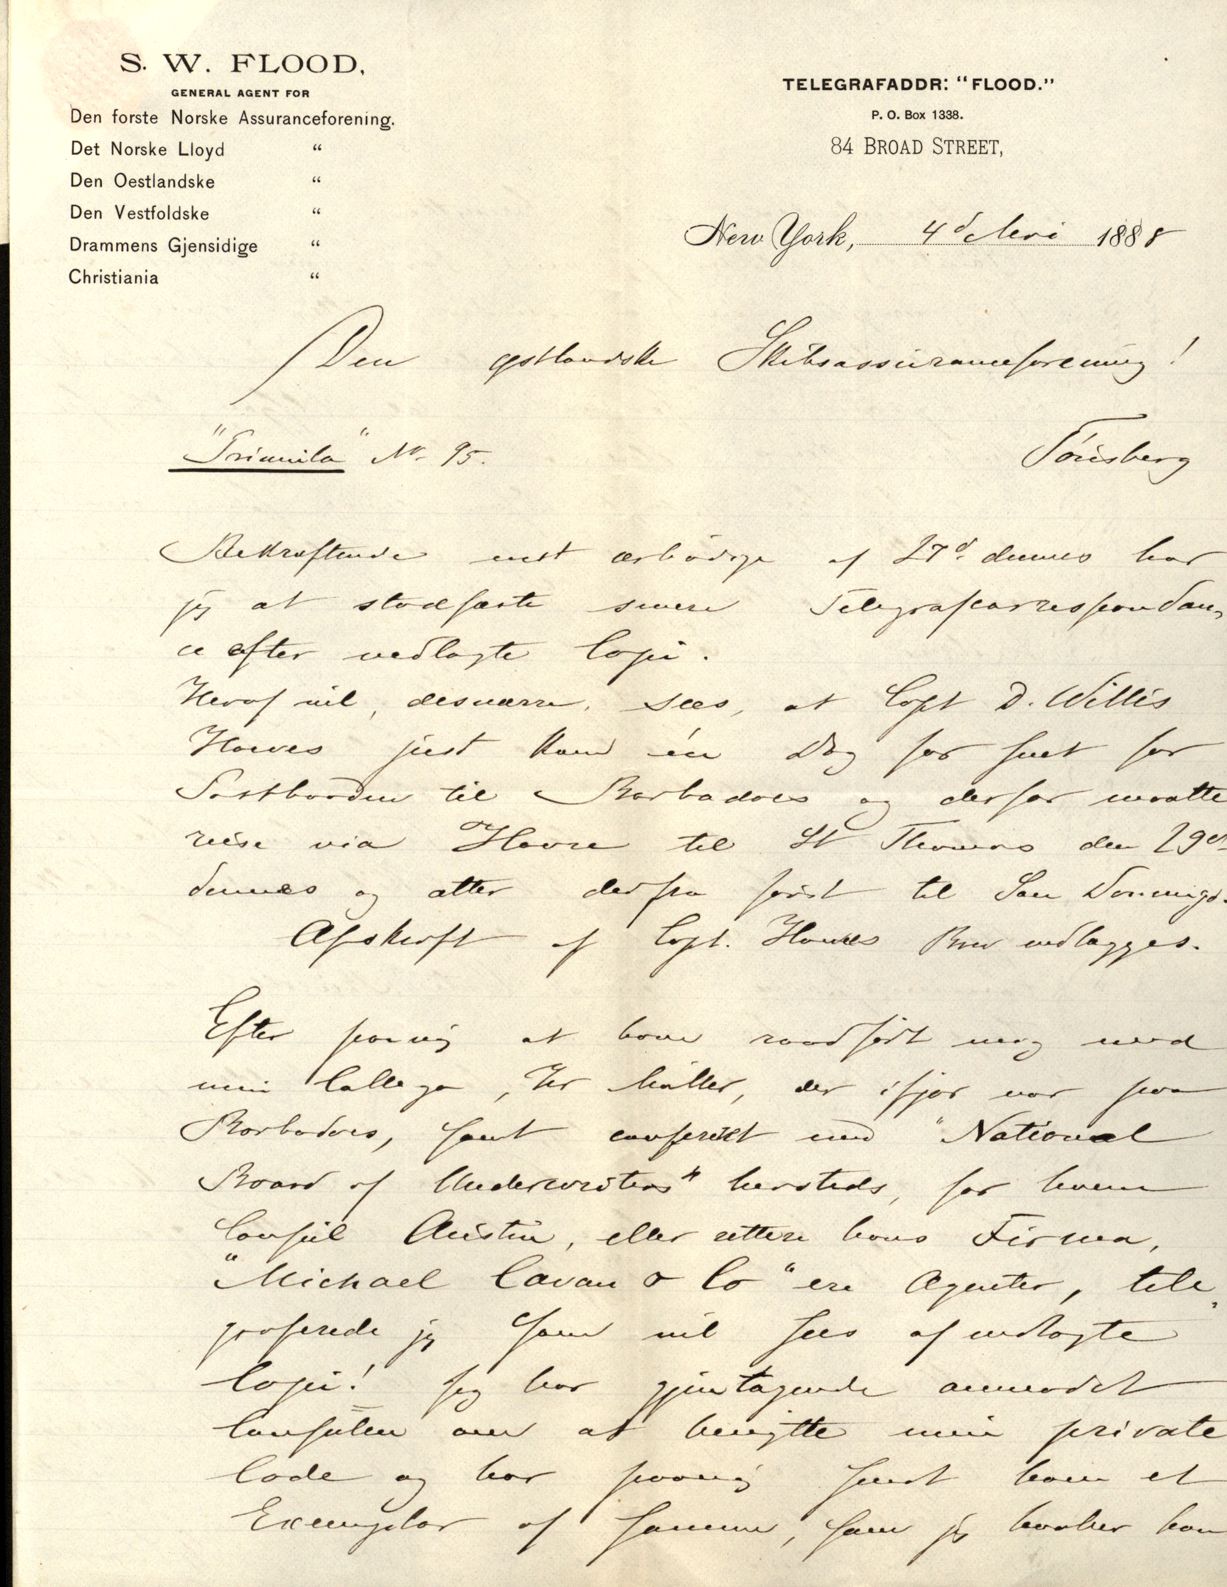 S. W. FLOOD,
GENERAL AGENT FOR
Den forste Norske Assuranceforening.
Det Norske Lloyd "
Den Oestlandske "
Den Vestfoldske "
Drammens Gjensidige "
Christiania "
TELEGRAFADDR: "FLOOD."
P. O. Box 1338.
84 BROAD STREET,
New York, 4d Mai 1888
Den østlandske Skibsassuranceforening!
"Primula" No 95.
Tønsberg
Bekræftende mit ærbødige af 27d dennes har
jeg at stadfæste senere Telegrafcorrespondan-
ce efter vedlagte Copi.
Heraf vil, desværre, sees, at Capt D. Willis
Howes just kom én Dag for sent for
Postbaaden til Barbadoes og derfor maatte
reise via Havre til St Thomas den 29de
dennes og atter derfra først til San Domingo.
Afskrift af Capt. Howes Brev vedlægges.
Efter paany at have raadført mig med
min Collega, Hr Møller, der ifjor var paa
Barbadoes, samt confereret med "National
Board of Underwriters" hersteds, for hvem
Consul Austin, eller rettere hans Firma,
"Michael Cavan & Co" ere Agenter, tele-
graferede jeg som vil sees af vedlagte
Copi! Jeg har gjentagende anmodet
Consulen om at benytte min private
Code og har paany sendt ham et
Exemplar af samme, som jeg haaber han